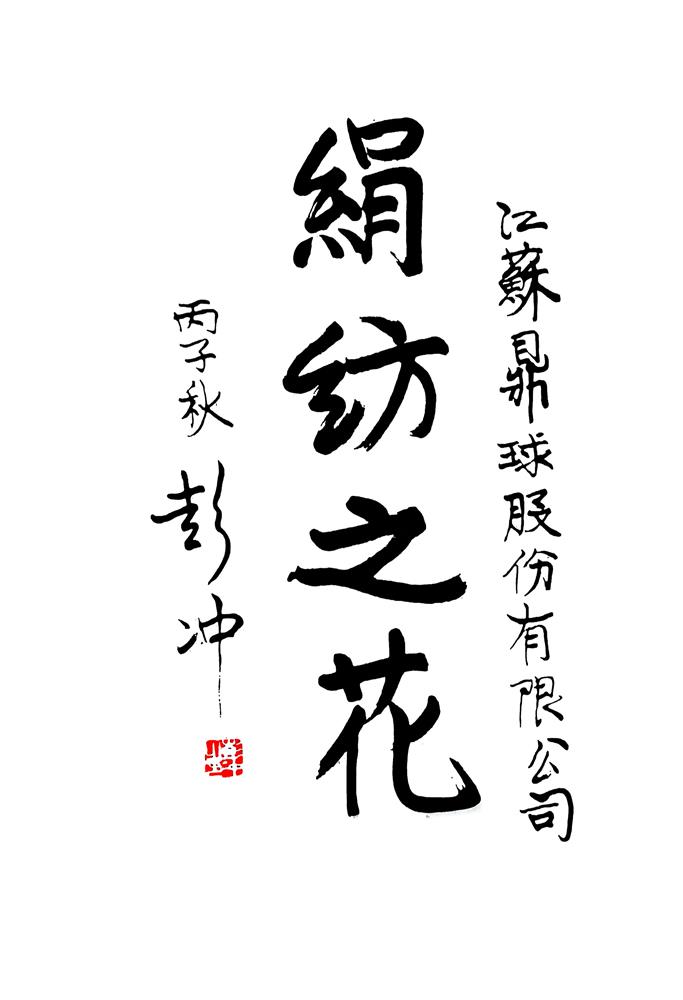 江蘇鼎球股份有限公司
絹紡之花
丙子秋
彭冲